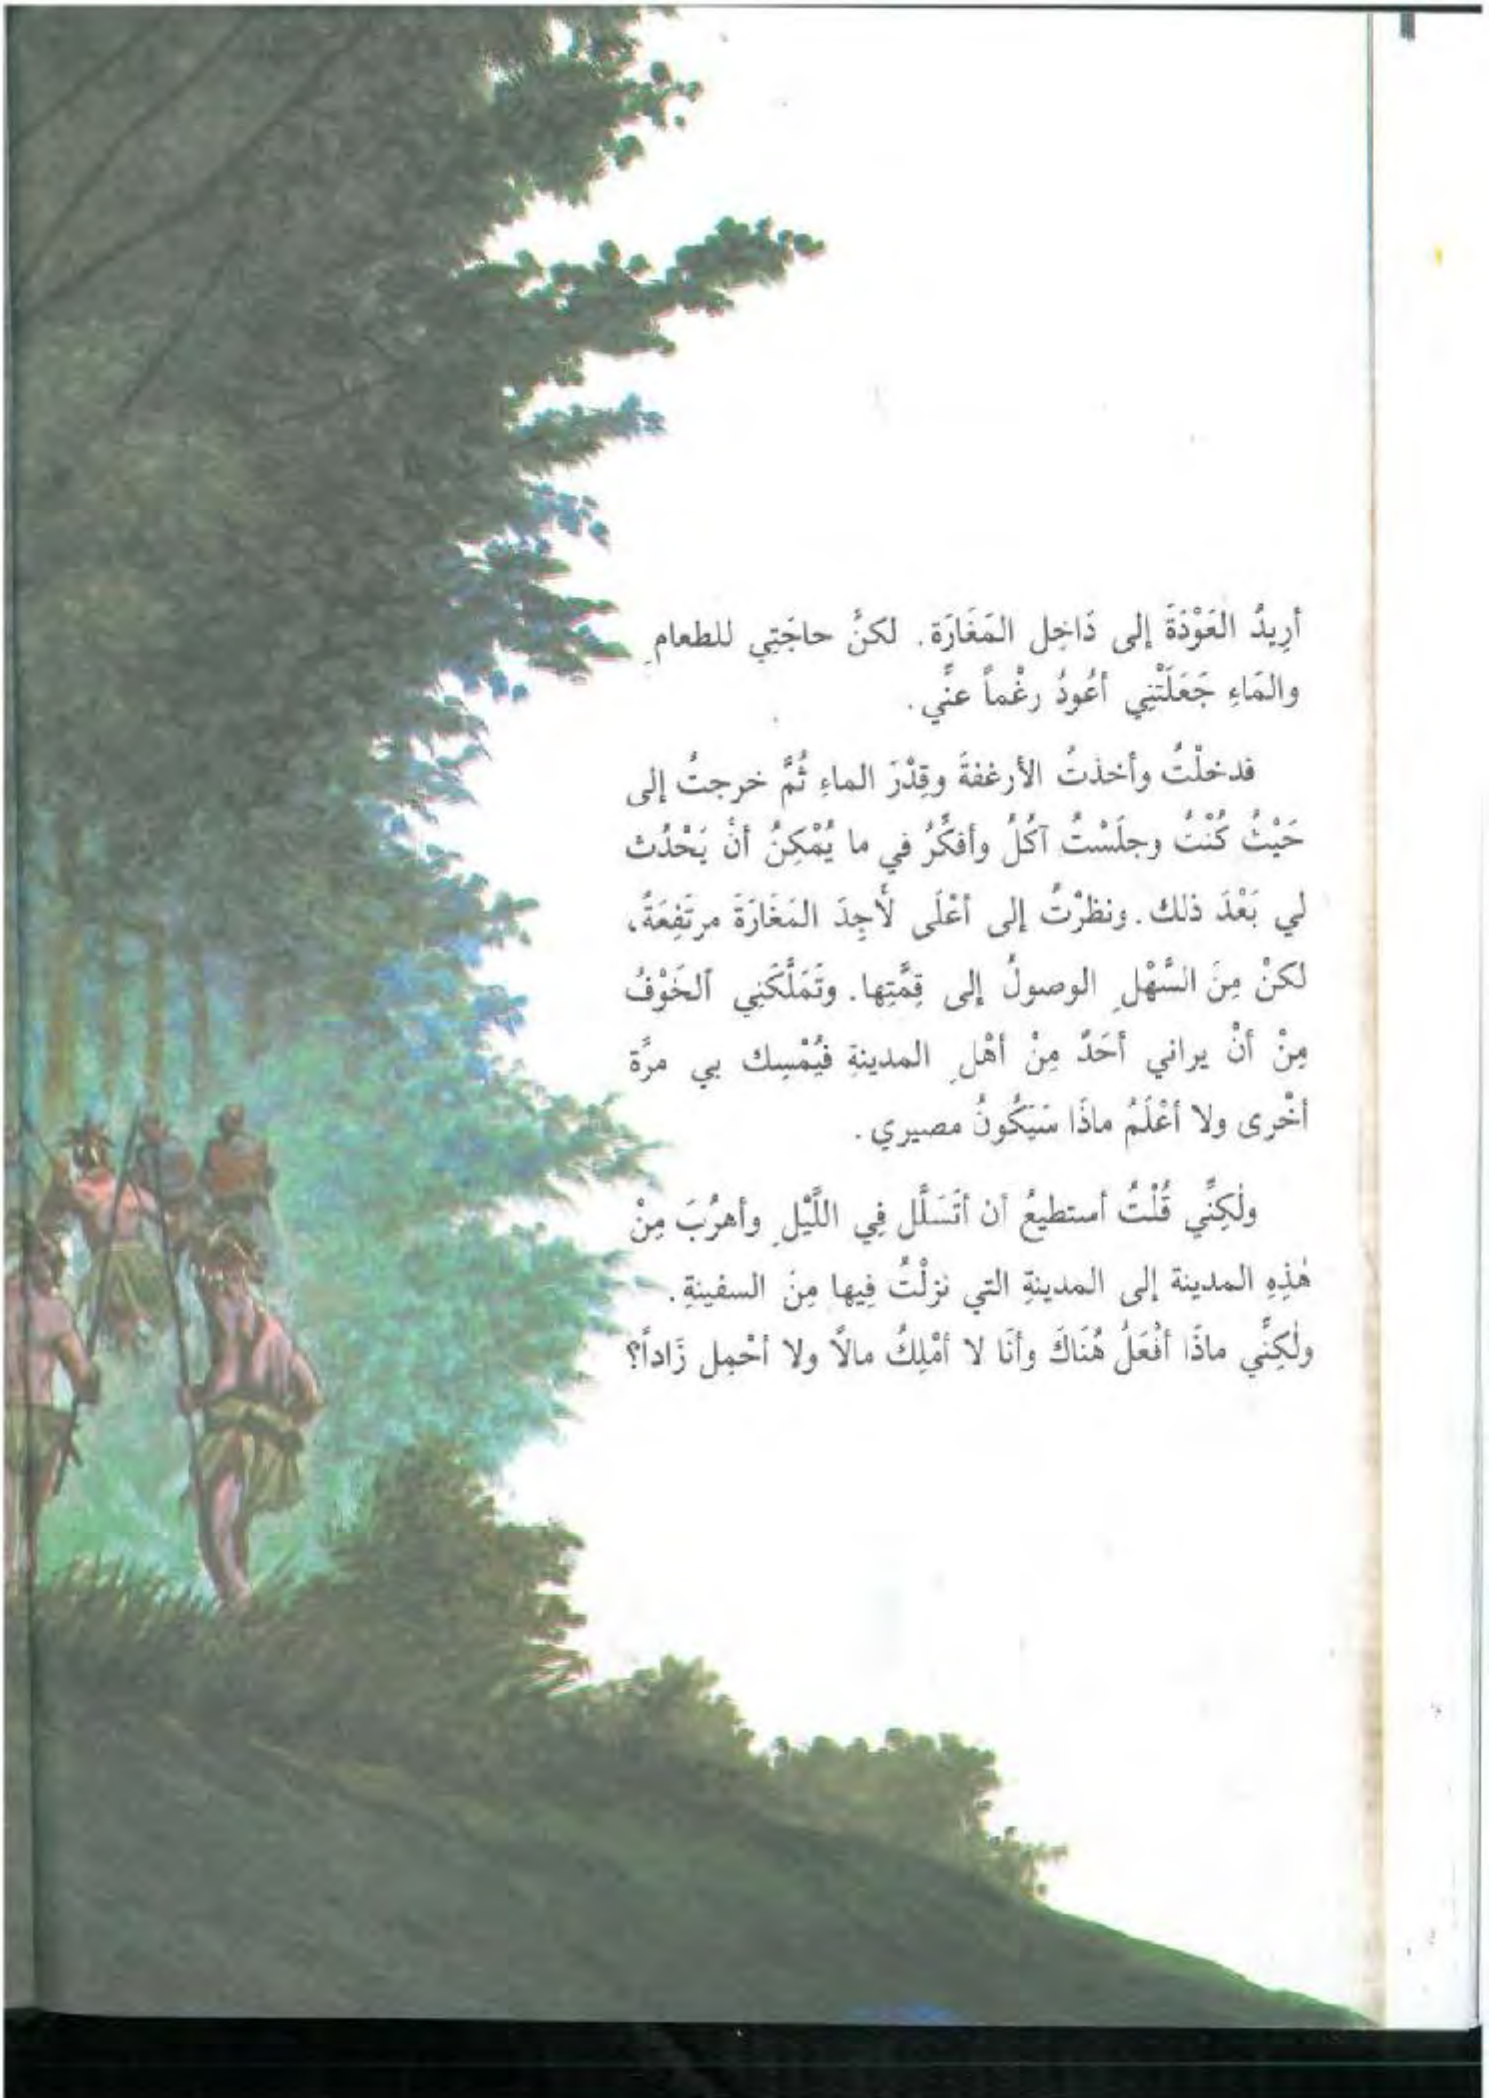 أرِيدُ العَوْدَةَ إلى دَاخِل المَغَارَة. لكنَّ حاجَتِي للطعامِ
والمَاءِ جَعَلَتْنِي أعُودُ رغْماً عنِّي.
فدخلْتُ وأخذتُ الأرغفةَ وقِدْرَ الماءِ ثُمَّ خرجتُ إلى
حَيْثُ كُنْتُ وجلَسْتُ آكُلُ وأفكِّرُ في ما يُمْكِنُ أنْ يَحْدُث
لي بَعْدَ ذلك. ونظرْتُ إلى أعْلَى لأَجِدَ المَغَارَةَ مرتَفِعَةً،
لكنْ مِنَ السَّهْلِ الوصولُ إلى قِمَّتِها. وتَمَلَّكَنِي ٱلخَوْفُ
مِنْ أنْ يراني أحَدٌ مِنْ أهْلِ المدينةِ فيُمْسِك بي مرَّة
أخْرى ولا أعْلَمُ ماذَا سَيَكُونُ مصيري.
ولٰكِنِّي قُلْتُ أستطيعُ أن أتَسَلَّل فِي اللَّيْلِ وأهرُبَ مِنْ
هٰذِهِ المدينة إلى المدينةِ التي نزلْتُ فِيها مِنَ السفينةِ.
ولٰكِنِّي ماذَا أفْعَلُ هُنَاكَ وأنَا لا أمْلِكُ مالاً ولا أحْمِل زَاداً؟